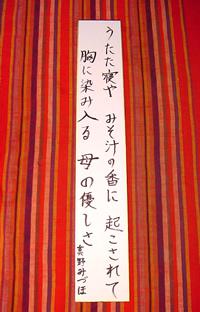 うたた寝や みそ汁の香に 起こされて
胸に染み入る 母の優しさ
真野みづほ